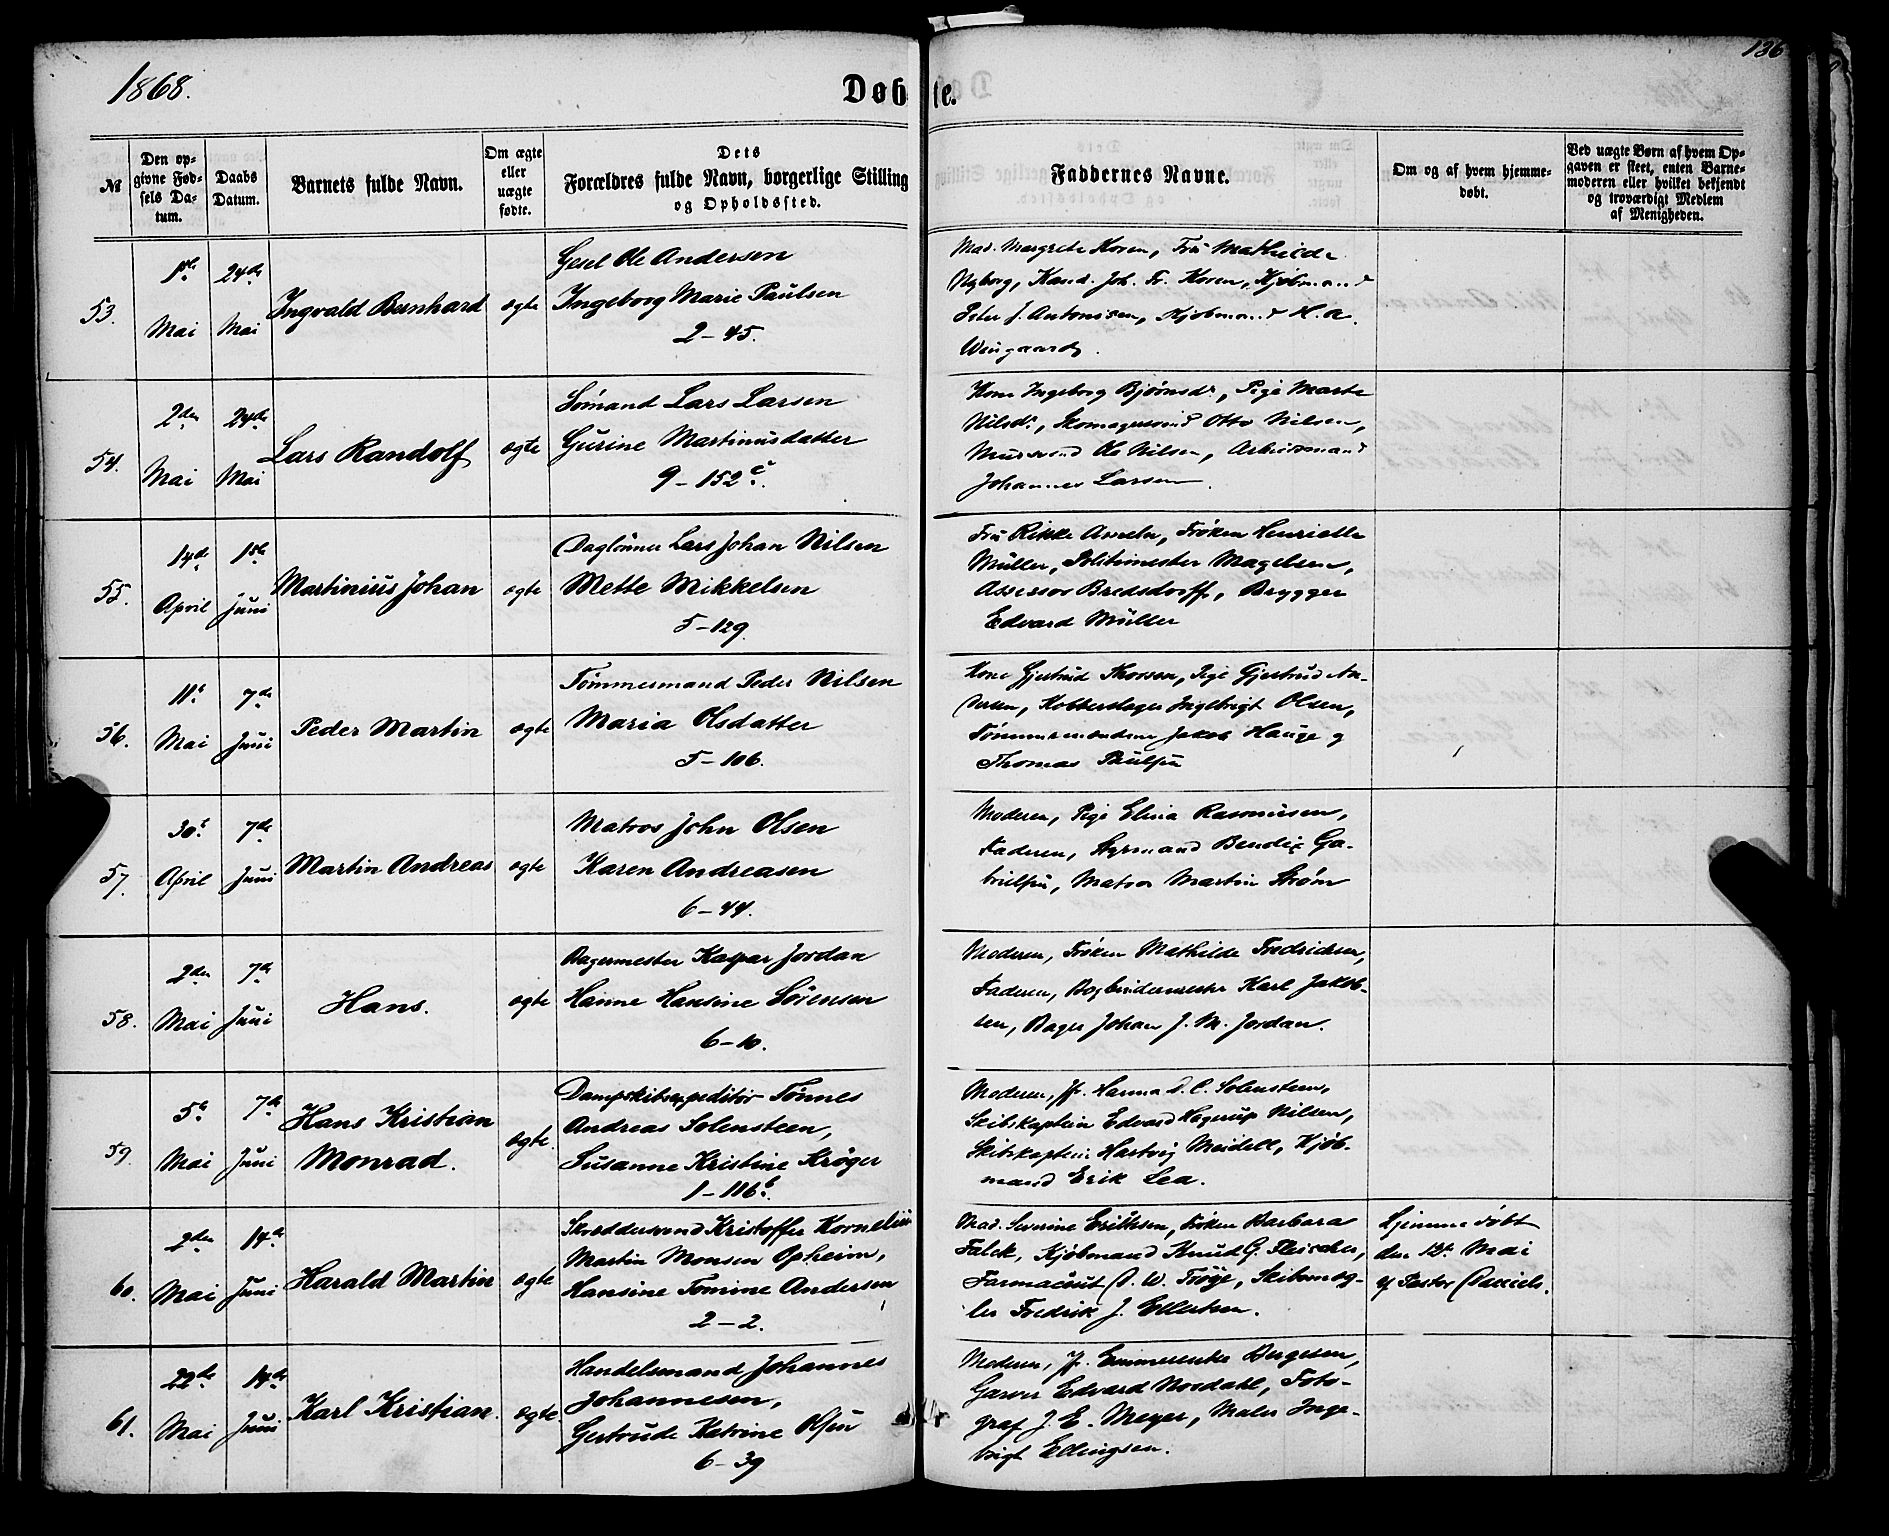 1868.
Døbte.
136
№
Den opgivne Fødsels Datum.
Daabs Datum.
Barnets fulde Navn.
Om ægte eller uægte fødte.
Dets Forældres fulde Navn, borgerlige Stilling og Opholdssted.
Faddernes Navne.
Om og af hvem hjemmedøbt.
Ved uægte Børn af hvem Opgaven er skeet, enten Barnemoderen eller hvilket bekjendt og troværdigt Medlem af Menigheden.
53. 1ste Mai 24de Mai Ingvald Bernhard ægte
Gesel Ole Andersen
Ingeborg Marie Paulsen
2-45.
Mad. Margrete Koren, Fru Mathilde
Nyborg, Kand. Joh. Fr. Koren, Kjøbmand
Peter J. Antonisen, Kjøbmand H. A.
Wingaard.
54. 2den Mai 24de Mai Lars Randolf ægte
Sømand Lars Larsen
Gurine Martinusdatter
9-152c.
Kone Ingeborg Bjørnsdr, Pige Marte
Nilsdr, Skomagersvend Otto Nilsen,
Mursvend Ole Nilsen, Arbeidsmand
Johannes Larsen.
55. 14d April 1ste Juni Martinius Johan ægte
Dagløner Lars Johan Nilsen
Mette Mikkelsen
5-129.
Fru Rikke, Frøken Henriette
Müller, Politimester Magelsen,
Assessor Bredsdorff, Brygger
Edvard Müller
56. 11t Mai 7de Juni Peder Martin ægte
Tømmermand Peder Nilsen
Maria Olsdatter
5-106.
Kone Gjertrud Thorsen, Pige Gjertrud An-
dersen, Kobberslager Ingebrigt Olsen,
Tømmermændene Jakob Hauge og
Thomas Paulsen
57. 30t April 7de Juni Martin Andreas ægte
Matros John Olsen
Karen Andreasen
6-44.
Moderen, Pige Elina Rasmusen,
Faderen, Styrmand Bendix Ga-
brielsen, Matros Martin Strøm
58. 2den Mai 7de Juni Hans. ægte
Bagermester Kaspar Jordan
Hanne Hansine Sørensen
6-10.
Moderen, Frøken Mathilde Fredriksen,
Faderen, Bogbindermester Karl Jakob-
sen, Bager Johan J. M. Jordan.
59. 5t Mai 7de Juni Hans Kristian Monrad. ægte.
Dampskibsexpeditør Tønnes
Andreas Solensteen,
Susanne Kristine Krøger
1-116b.
Moderen, Jfr. Hanna D. C. Solensteen,
Skibskaptein Edvard Hagerup Nilsen,
Skibskaptein Hartvig Meidell, Kjøb-
mand Erik Lea.
60. 2den Mai 14de Juni Harald Martin ægte
Skræddersvend Kristoffer Kornelius
Martin Monsen Opheim,
Hansine Tomine Andersen
2-2.
Mad. Severine Eriksen, Frøken Barbara
Falck, Kjøbmand Knud G. Fleischer,
Farmaceut D. W. Frøye, Skibsmæg-
ler Fredrik J. Ellertsen.
Hjemmedøbt
den 12t Mai
af Pastor Daniels.
61. 22de Mai 14de Juni Karl Kristian. ægte
Handelsmand Johannes
Johannesen,
Gertrude Katrine Olsen
6-39
Moderen, Jf. Emmerentse Bergesen,
Garver Edvard Nordahl, Foto-
graf J. E. Meyer, Maler Inge-
brigt Ellingsen.